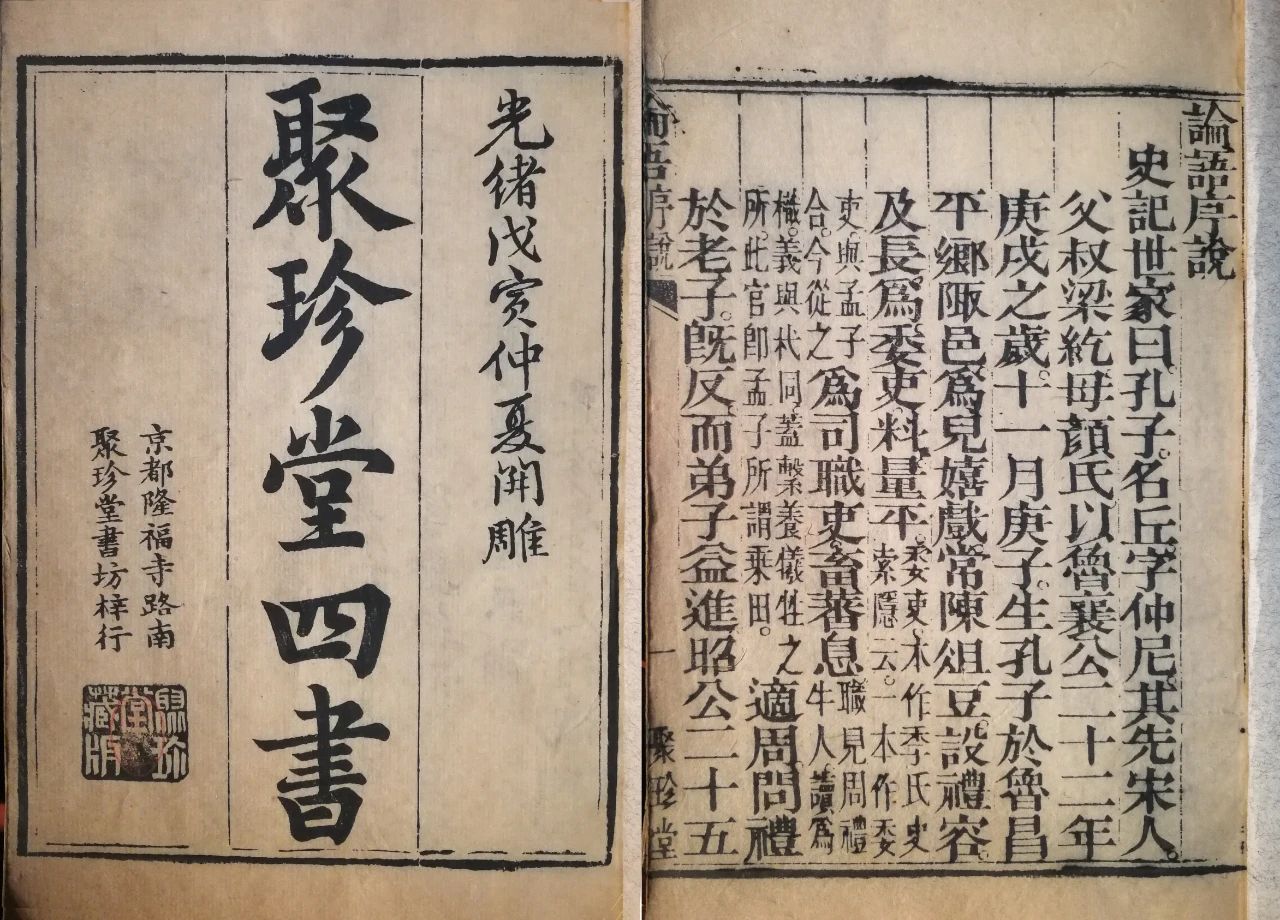 光緒戊寅仲夏開雕
聚珍堂四書
京都隆福寺路南
聚珍堂書坊梓行
聚珍堂藏版
論語序說
史記世家曰孔子。名丘字仲尼。其先宋人。
父叔梁紇母顏氏以魯襄公二十二年
庚戌之歲。十一月庚子。生孔子於魯昌
平鄉陬邑爲兒嬉戲常陳俎豆。設禮容。
及長爲委吏料量平。委吏本作季氏史索隱云。一本作委
吏。與孟子合。今從之爲司職吏畜蕃息職見周禮牛人讀爲
樴。義與杙同。蓋繫養犧牲之所。此官即孟子所謂乘田。適周問禮
於老子。旣反而弟子益進昭公二十五
論語序說 一 聚珍堂